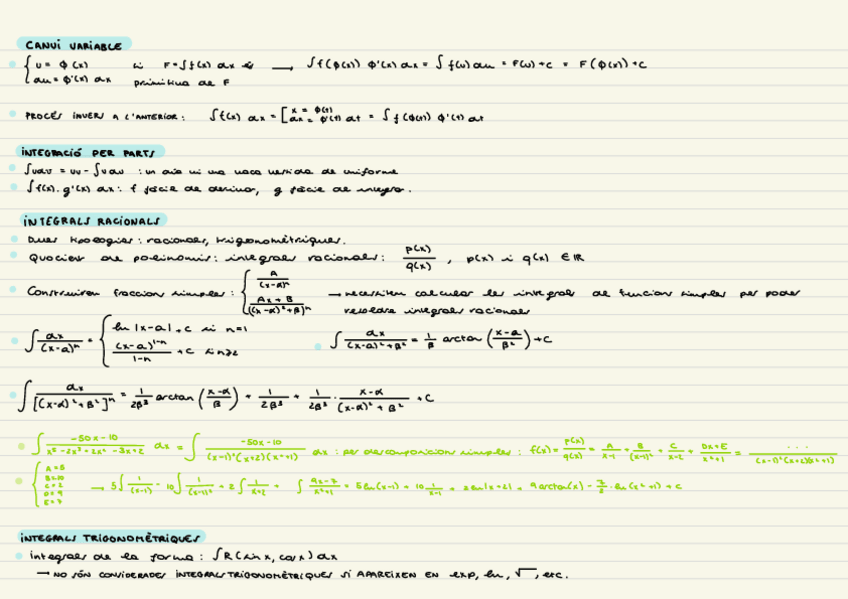 CANVI VARIABLE
{ u = φ(x) si F = ∫f(x) dx és → ∫f(φ(x)) φ'(x) dx = ∫f(u) du = F(u) + C = F(φ(x)) + C
du = φ'(x) dx primitiva de F
PROCÉS INVERS A L'ANTERIOR: ∫f(x) dx = [x = φ(t) dx = φ'(t) dt = ∫f(φ(t)) φ'(t) dt
INTEGRACIÓ PER PARTS
∫udv = uv - ∫vdu : un dia vi una vaca vestida de uniforme
∫f(x).g'(x) dx: f fàcil de derivar, g fàcil de integrar.
INTEGRALS RACIONALS
Dues tipologies: racionals, trigonomètriques.
Quocient de polinomis: integrals racionals: p(x)/q(x) , p(x) i q(x) ∈ IR
Construirem fraccions simples: { A/(x-α)ⁿ → necessiten calcular les integrals de funcions simples per poder
(Ax + B)/((x-α)²+β)ⁿ resoldre integrals racionals
∫dx/(x-a)ⁿ = { ln|x-a| + C si n=1
(x-a)¹⁻ⁿ/(1-n) + C si n≥2
∫dx/((x-a)²+β²) = 1/β arctan((x-a)/β²) + C
∫dx/[(x-α)²+β²]ⁿ = 1/2β³ arctan((x-α)/β) + 1/2β³ + 1/2β³ · (x-α)/((x-α)²+β²) + C
dx = ∫(-50x-10)/((x-1)²(x+2)(x²+1)) dx : per descomposicion simples: f(x) = p(x)/q(x) = A/(x-1) + B/(x-1)² + C/(x-2) + (Dx+E)/(x²+1) = .../((x-1)²(x+2)(x²+1))
INTEGRALS TRIGONOMÈTRIQUES
integrals de la forma: ∫R(sinx, cosx) dx
→ NO SÓN CONSIDERADES INTEGRALS TRIGONOMÈTRIQUES SI APAREIXEN EN exp, ln, √, etc.